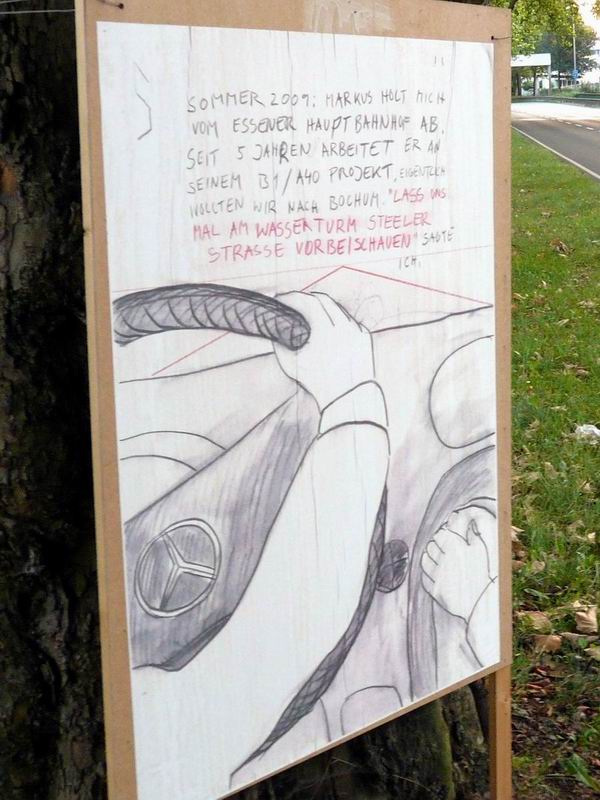 SOMMER 2009: MARKUS HOLT MICH
VOM ESSENER HAUPTBAHNHOF AB.
SEIT 5 JAHREN ARBEITET ER AN
SEINEM B1/A40 PROJEKT, EIGENTLICH
WOLLTEN WIR NACH BOCHUM. "LASS UNS
MAL AM WASSERTURM STEELER
STRASSE VORBEISCHAUEN" SAGTE
ICH.